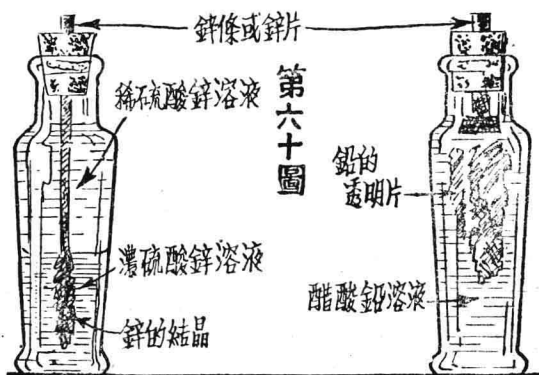 鋅條或鋅片
稀硫酸鋅溶液
第六十圖
鉛的
透明片
濃硫酸鋅溶液
醋酸鉛溶液
鋅的結晶